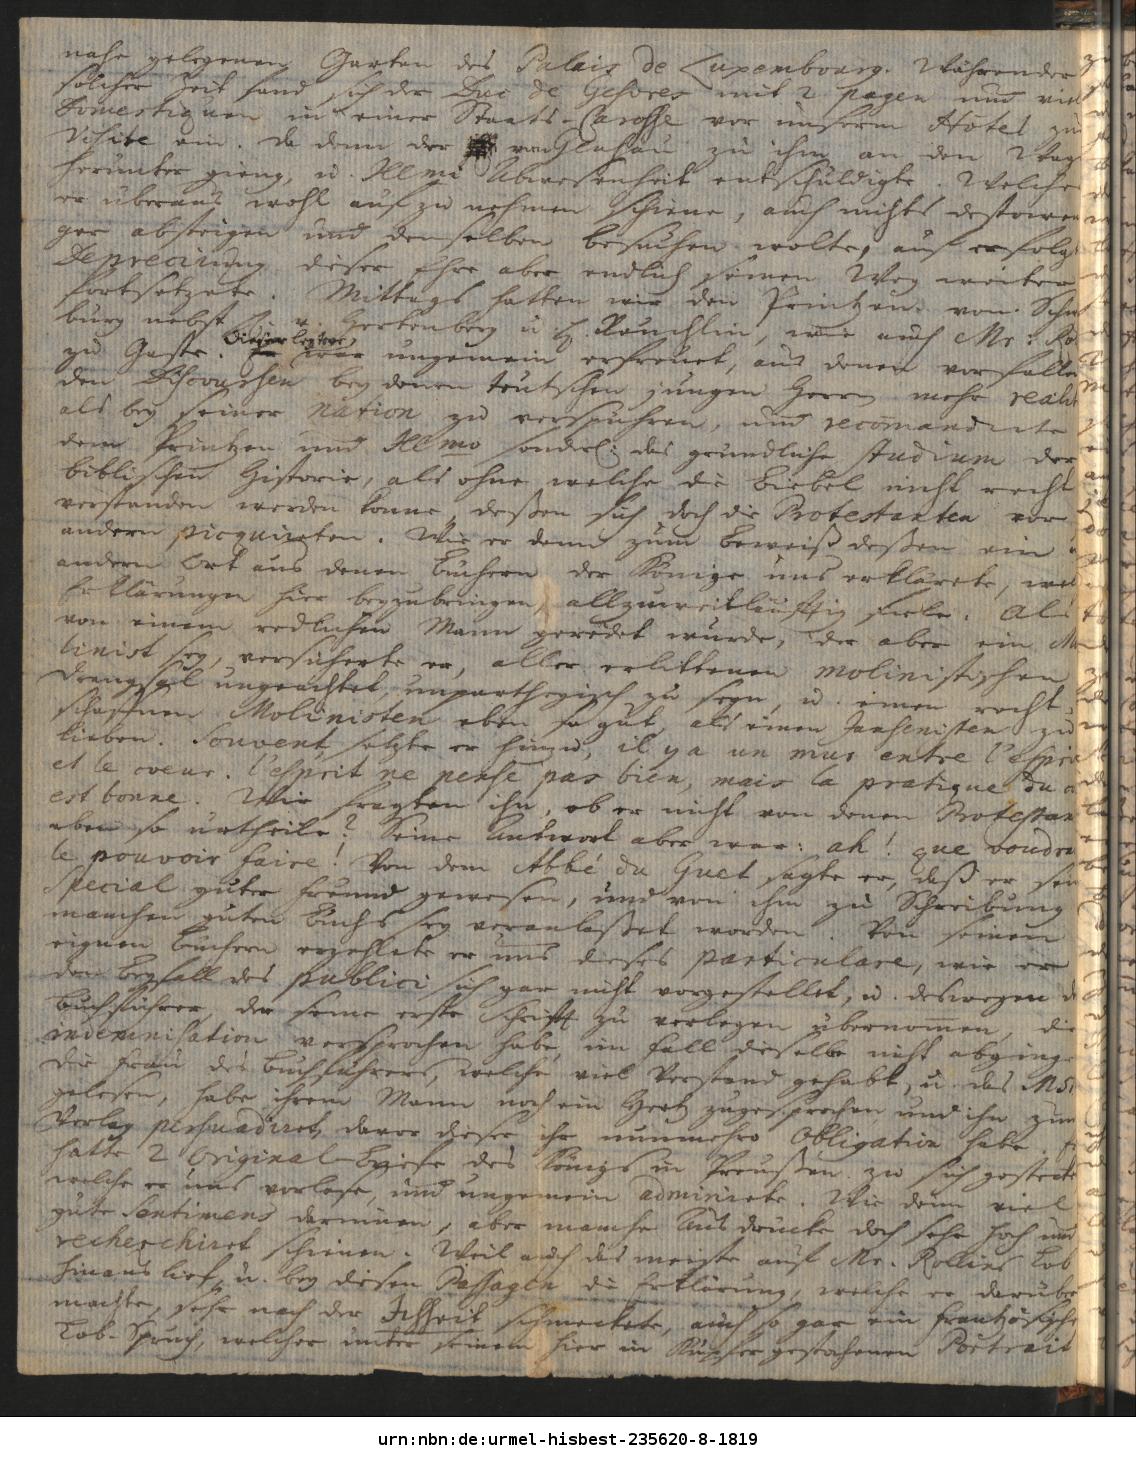 nahe gelegenen Garten des Palais de Luxembourg. Während
solcher Zeit fand sich der Duc de Gesvres mit 2 pagen und viel
Domestiquen in einer Staats-Carosse vor unserm Hôtel zu
Visite ein. Da denn der von Geusau zu ihm an den Wag
herunter gieng, u. Illmi Abwesenheit entschuldigte. Welches
er überaus wohl aufzunehmen schiene, auch nichts destowe
ger absteigen und denselben besuchen wolte, auf erfolg
Deprecirung dieser Ehre aber endlich seinen Weg weiter
fortsetzete. Mittags hatten wir den Printzen von Schw
burg nebst H. v. Hertenberg u. H. Reuchlin, wie auch Mr. Ro
zu Gaste. Dieser letztere war ungemein erfreuet, aus denen vorfalle
den Discoursen bey denen teutschen jungen Herrn mehr realit
als bey seiner nation zu verspühren, und recomandirte
dem Printzen und Illmo sonderl. das gründliche studium der
biblischen Historie, als ohne welche die Biebel nicht recht
verstanden werden könne, deßen sich doch die Protestanten vor
andern picquirten. Wie er denn zum Beweiß deßen ein u
andern Ort aus denen Büchern der Könige uns erklärete, wel
Erklärungen hier beyzubringen, allzuweitläuftig fiele. Als
von einem redlichen Mann geredet wurde, der aber ein Mo
linist sey, versicherte er, aller erlittenen molinistischen
Drangsal ungeachtet, unpartheyisch zu seyn, u. einen recht
schaffnen Molinisten eben so gut, als einen Jansenisten zu
lieben. Souvent setzte er hinzu, il y a un mur entre l'espri
et le coeur. l'esprit ne pense pas bien, mais la pratique du c
est bonne. Wir fragten ihn, ob er nicht von denen Protestan
eben so urtheile? Seine Antwort aber war: ah! que voudro
le pouvoir faire! Von dem Abbé du Guet sagte er, daß er sein
special guter Freund gewesen, und von ihm zu Schreibung
manches guten Buchs sey veranlaßet worden. Von seinen
eignen Büchern erzehlete er uns dieses particulare, wie er
den Beyfall des publici sich gar nicht vorgestellet, u. deswegen d
Buchführer, der seine erste Schrift zu verlegen übernommen, die
indemnisation versprochen habe, im Fall dieselbe nicht abginge
Die Frau des Buchführers, welche viel Verstand gehabt, u. das MSt
gelesen, habe ihrem Mann noch ein Hertz zugesprochen und ihn zum
Verlag persuadiret, davor dieser ihr nunmehro Obligation habe. Er
hatte 2 Original-Briefe des Königs in Preußen zu sich gesteckt
welche er uns vorlase, und ungemein admirirte. Wie denn viel
gute Sentimens darinnen, aber manche Ausdrücke doch sehr hoch und
recherchiret schienen. Weil auch das meiste auf Mr. Rollins Lob
hinaus lief, u. bey diesen Passagen die Erklärung, welche er darüber
machte, sehr nach der Ichheit schmeckete, auch so gar ein frantzösische
Lob-Spruch, welcher unter seinem hier in Kupfer gestochenen Portrait
urn:nbn:de:urmel-hisbest-235620-8-1819